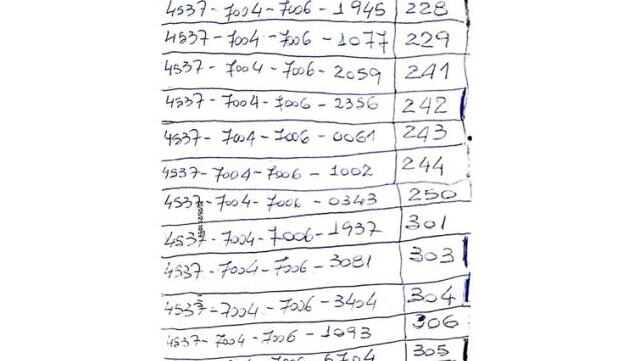 4537-7004-7006-1945 228
4537-7004-7006-1077 229
4537-7004-7006-2059 241
4537-7004-7006-2356 242
4537-7004-7006-0061 243
4537-7004-7006-1002 244
4537-7004-7006-0343 250
4537-7004-7006-1937 301
4537-7004-7006-3081 303
4537-7004-7006-3404 304
4537-7004-7006-1093 306
305